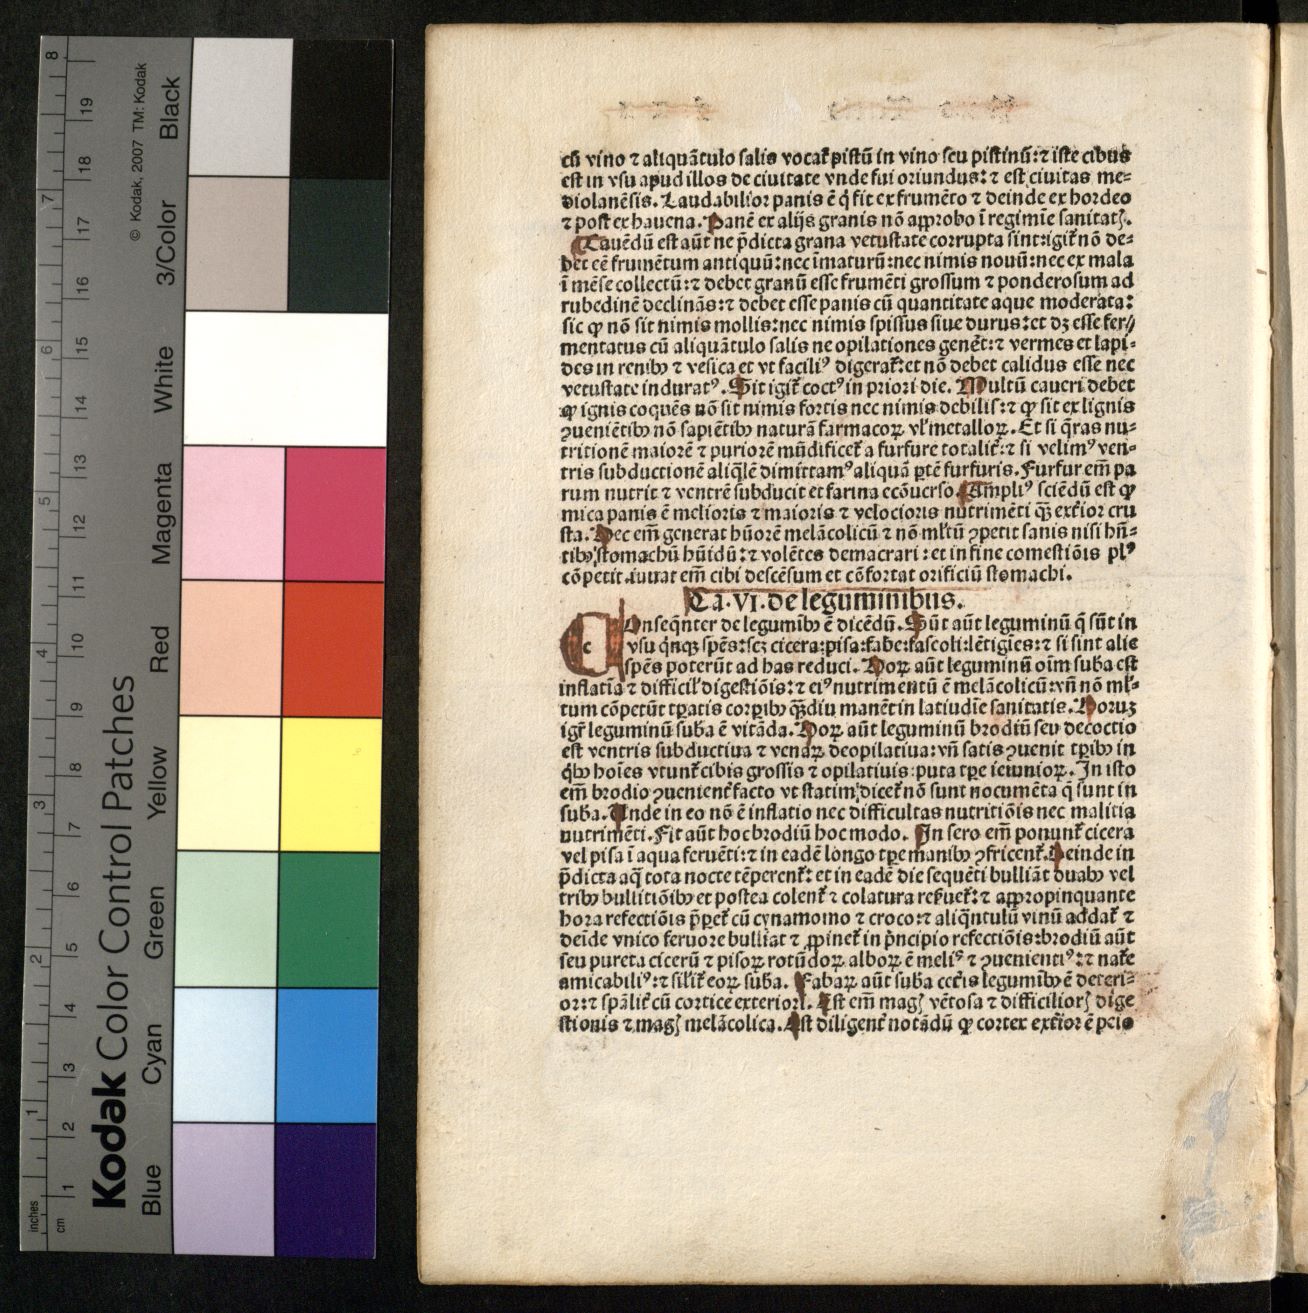 cū vino ⁊ aliquātulo salis vocat᷑ pistū in vino seu pistinū:⁊ iste cibus
est in vsu apud illos de ciuitate vnde fui oriundus:⁊ est ciuitas me⸗
diolanēsis. Laudabilior panis ē q̄ fit ex frumēto ⁊ deinde ex hordeo
⁊ post ex hauena. Panē ex alijs granis nō aꝓrobo ī regimīe sanitatꝭ.
Cauēdū est aūt ne p̄dicta grana vetustate corrupta sint:igit᷑ nō de⸗
bet eē frumētum antiquū:nec īmaturū:nec nimis nouū:nec ex mala
ī mēse collectū:⁊ debet granū esse frumēti grossum ⁊ ponderosum ad
rubedinē declinās:⁊ debet esse panis cū quantitate aque moderata:
sic ꝙ nō sit nimis mollis:nec nimis spissus siue durus:et dꝫ esse fer⸗
mentatus cū aliquātulo salis ne opilationes genēt:⁊ vermes et lapi⸗
des in renibꝰ ⁊ vesica et vt faciliꝰ digerat᷑:et nō debet calidus esse nec
vetustate induratꝰ. Sit igit᷑ coctꝰ in priori die. Multū caueri debet
ꝙ ignis coquēs nō sit nimis fortis nec nimis debilis:⁊ ꝙ sit ex lignis
ꝯueniētibꝰ nō sapiētibꝰ naturā farmacoꝝ vl᷑ metalloꝝ. Et si q̄ras nu⸗
tritionē maiorē ⁊ puriorē mūdificet᷑ a furfure totalit᷑:⁊ si velimꝰ ven⸗
tris subductionē aliq̄lē dimittamꝰ aliquā ꝑtē furfuris. Furfur em̄ pa
rum nutrit ⁊ ventrē subducit et farina ecōuerso. Ampliꝰ sciēdū est ꝙ
mica panis ē melioris ⁊ maioris ⁊ velocioris nutrimēti q̄ꝫ ext᷑ior cru
sta. Hec em̄ generat hūorē melācolicū ⁊ nō ml᷑tū ꝯpetit sanis nisi hn̄⸗
tibꝰ stomachū hūidū:⁊ volētes demacrari:et in fine comestiōis plꝰ
cōpetit.iuuat em̄ cibi descēsum et cōfortat orificiū stomachi.
Ca.VI.de leguminibus.
c Onseq̄nter de legumībꝰ ē dicēdū. Sūt aūt leguminū q̄ sūt in
vsu q̇nqꝫ spēs:scꝫ cicera:pisa:fabe:fascoli:lētigies:⁊ si sint alie
spēs poterūt ad has reduci. Hoꝝ aūt leguminū oīm suba est
inflatīa ⁊ difficil᷑ digestiōis:⁊ eiꝰ nutrimentū ē melācolicū:vn̄ nō ml᷑⸗
tum cōpetūt tꝑatis corꝑibꝰ q̄ꝫdiu manēt in latiudīe sanitatis. Horuꝫ
igr̄ leguminū suba ē vitāda. Hoꝝ aūt leguminū brodiū seu decoctio
est ventris subductiua ⁊ venaꝝ deopilatiua:vn̄ satis ꝯuenit tꝑibꝰ in
q̇bꝰ hoīes vtunt᷑ cibis grossis ⁊ opilatiuis:puta tꝑe ieiunioꝝ. In isto
em̄ brodio ꝯuenient᷑ facto vt statim dicet᷑ nō sunt nocumēta q̄ sunt in
suba. Unde in eo nō ē inflatio nec difficultas nutritiōis nec malitia
nutrimēti. Fit aūt hoc brodiū hoc modo. In sero em̄ ponunt᷑ cicera
vel pisa ī aqua feruēti:⁊ in eadē longo tꝑe manibꝰ ꝯfricent᷑. Deinde in
p̄dicta aq̄ tota nocte tēperent᷑:et in eadē die sequēti bulliāt duabꝰ vel
tribꝰ bullitiōibꝰ et postea colent᷑ ⁊ colatura reſuet᷑:⁊ aꝓropinquante
hora refectiōis p̄ꝑet᷑ cū cynamomo ⁊ croco:⁊ aliq̄ntulū vinū addat᷑ ⁊
deīde vnico feruore bulliat ⁊ ꝓpinet᷑ in ṗncipio refectiōis:brodiū aūt
seu pureta cicerū ⁊ pisoꝝ rotūdoꝝ alboꝝ ē meliꝰ ⁊ ꝯuenientiꝰ:⁊ nat᷑e
amicabiliꝰ:⁊ silit᷑ eoꝝ suba. Fabaꝝ aūt suba cet᷑is legumībꝰ ē deteri⸗
or:⁊ spālit᷑ cū cortice exteriori. Est em̄ magꝭ vētosa ⁊ difficiliorꝭ dige
stionis ⁊ magꝭ melācolica. Est diligent᷑ notādū ꝙ cortex ext᷑ior ē peio
Kodak Color Control Patches
© Kodak, 2007 TM: Kodak
Blue Cyan Green Yellow Red Magenta White 3/Color Black
inches 1 2 3 4 5 6 7 8
cm 1 2 3 4 5 6 7 8 9 10 11 12 13 14 15 16 17 18 19